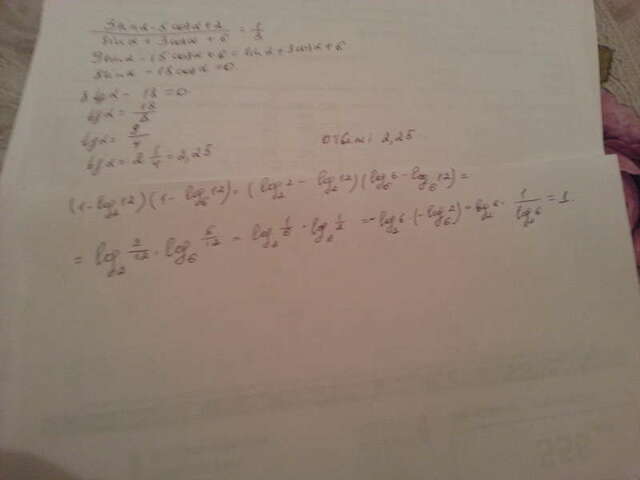 3sinα - 5cosα + 2 / sinα + 3cosα + 6 = 1/3
9sinα - 15cosα + 6 = sinα + 3cosα + 6
8sinα - 18cosα = 0.
8tgα - 18 = 0
tgα = 18/8
tgα = 9/4
tgα = 2 1/4 = 2,25
Ответ: 2,25
(1 - log₂12)(1 - log₆12) = (log₂2 - log₂12)(log₆6 - log₆12) =
= log₂ 2/12 · log₆ 6/12 = log₂ 1/6 · log₆ 1/2 = -log₂6 · (-log₆2) = log₂6 · 1/log₂6 = 1.